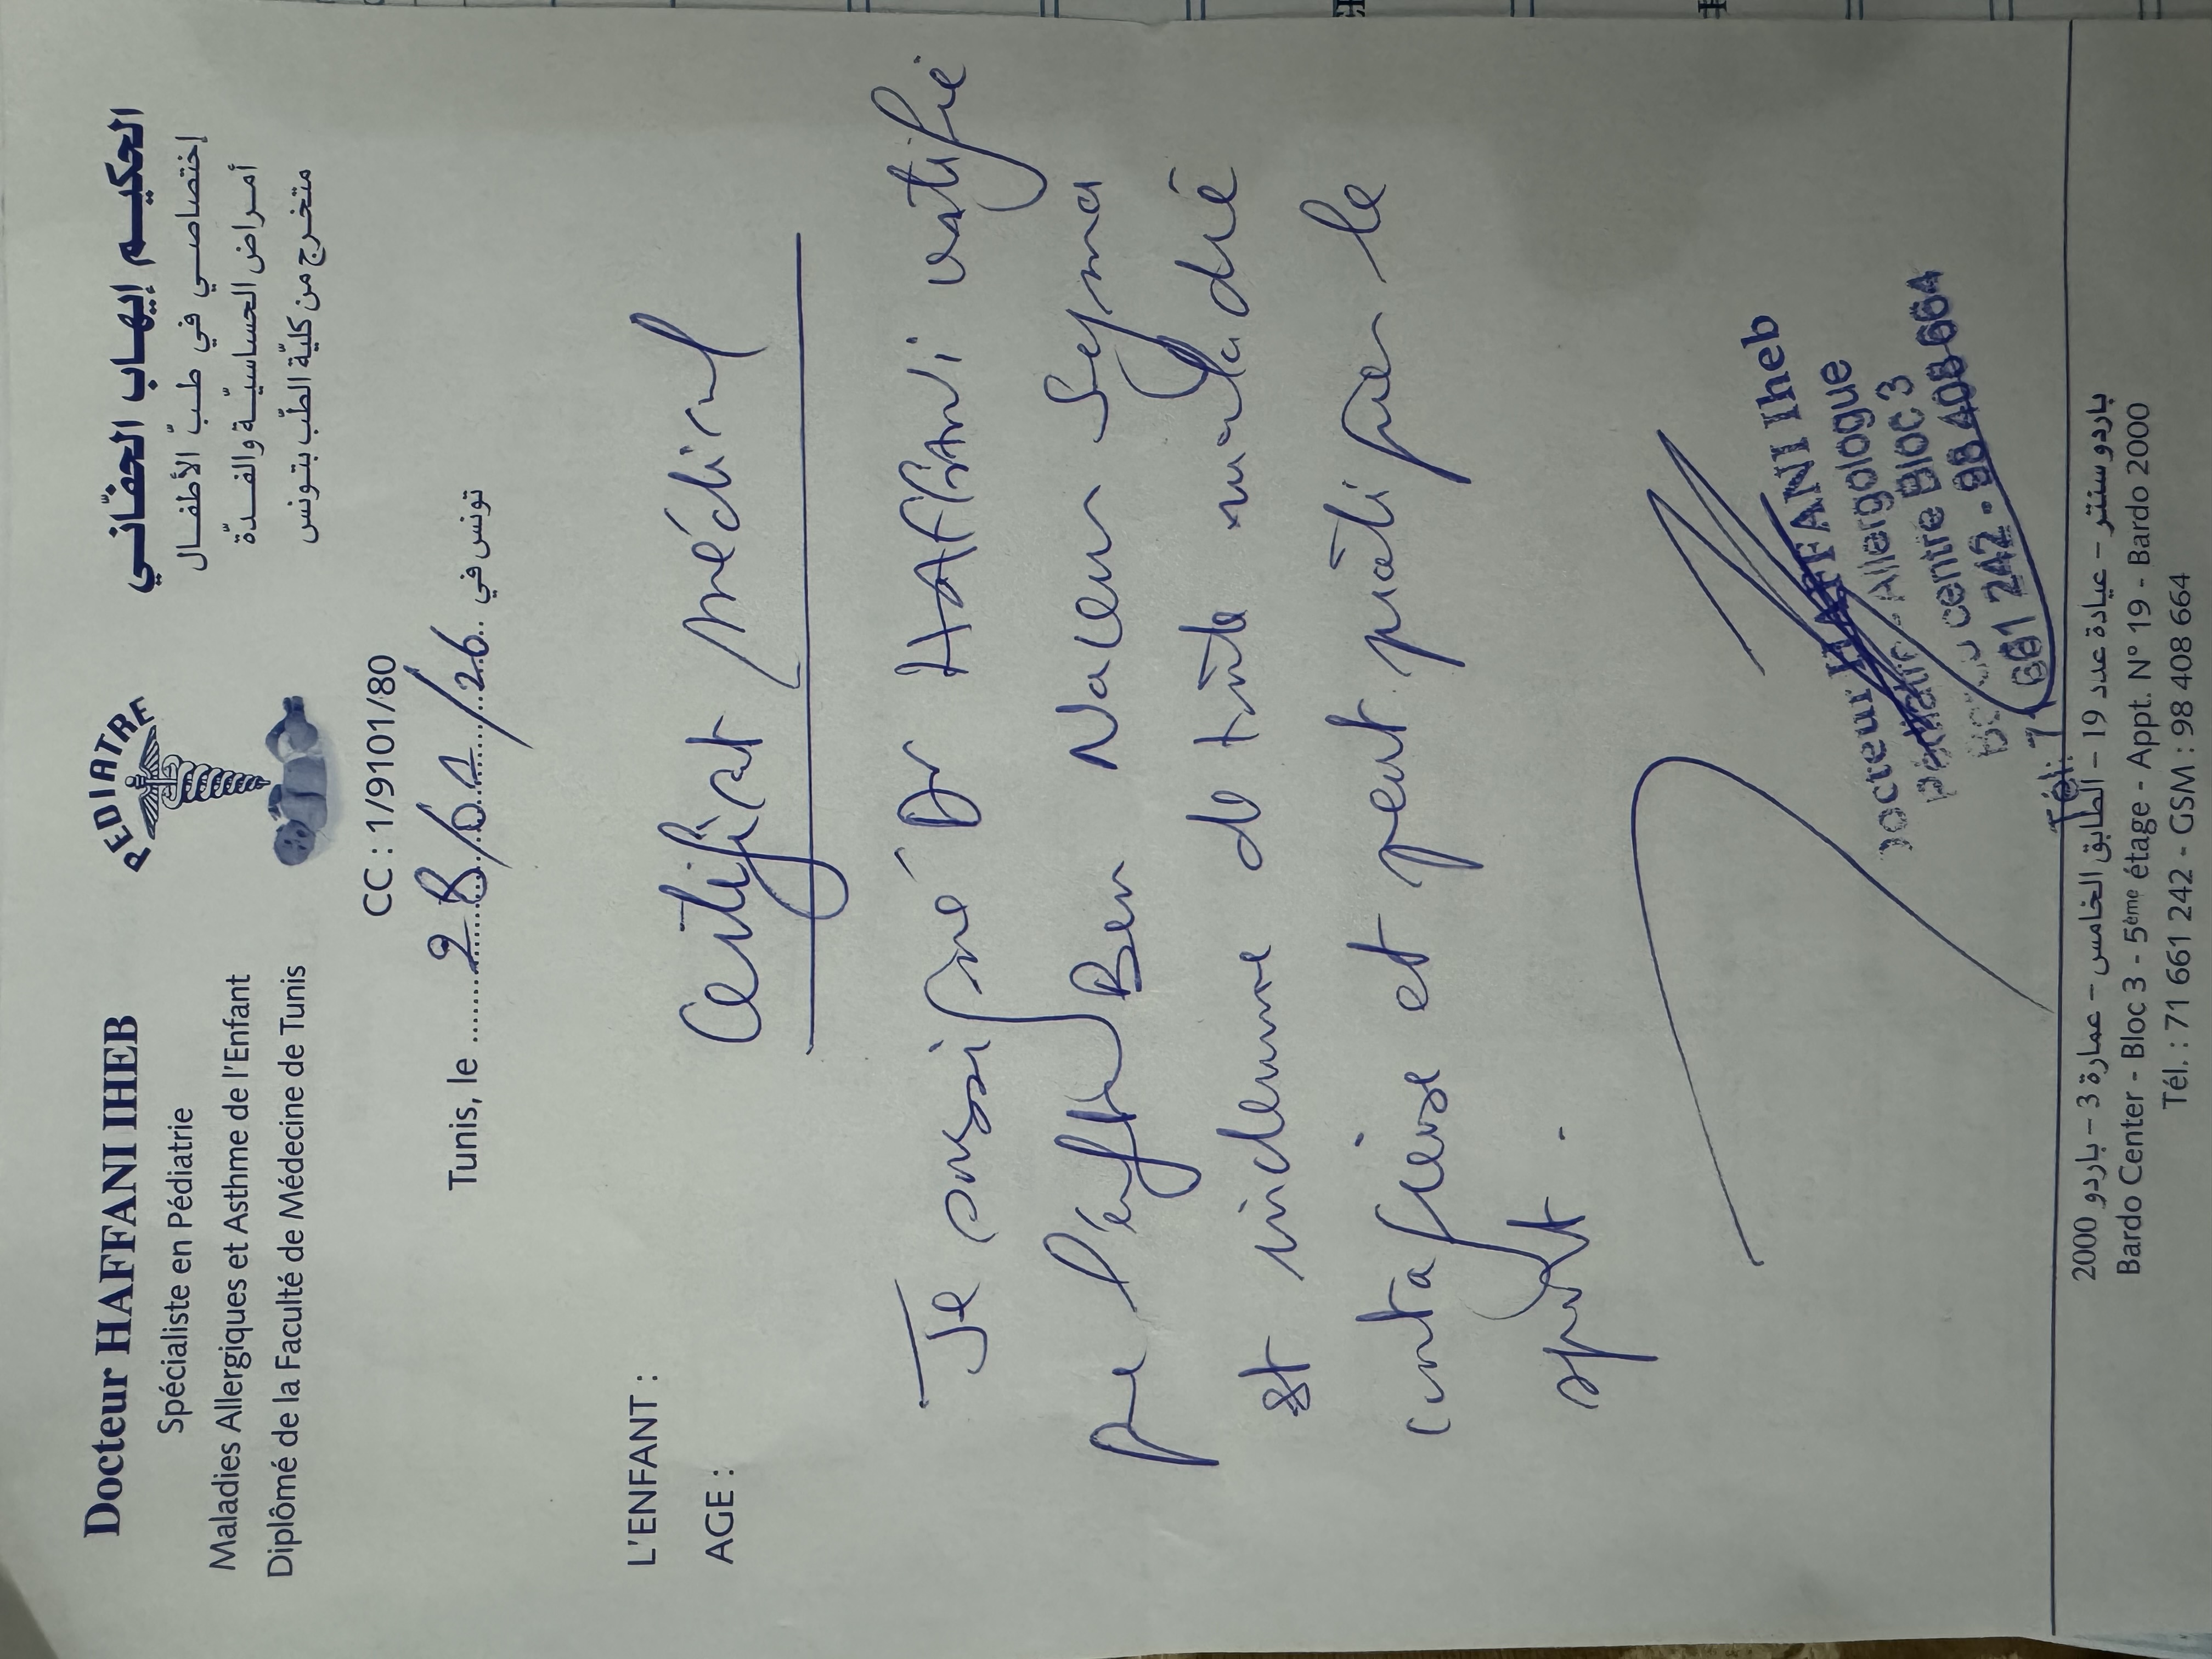 Docteur HAFFANI IHEB
Spécialiste en Pédiatrie
Maladies Allergiques et Asthme de l'Enfant
Diplômé de la Faculté de Médecine de Tunis
PEDIATRE
الحكيم إيهاب الحفّاني
إختصاصي في طبّ الأطفال
أمراض الحساسيّة والفدّة
متخرج من كليّة الطبّ بتونس
CC : 1/9101/80
Tunis, le 28/01/26 تونس في
L'ENFANT :
AGE :
Certificat Médical
Je soussigné Dr HAFFANI certifie
que l'enfant Ben Naceur Seyma
est indemne de toute maladie
contagieuse et peut pratiquer le
sport.
Docteur HAFFANI Iheb
Pédiatre Allergologue
Bardo centre Bloc 3
Tél: 71 661 242 - 98 408 664
باردو سنتر - عيادة عدد 19 - الطابق الخامس - عمارة 3 - باردو 2000
Bardo Center - Bloc 3 - 5ème étage - Appt. N° 19 - Bardo 2000
Tél. : 71 661 242 - GSM : 98 408 664